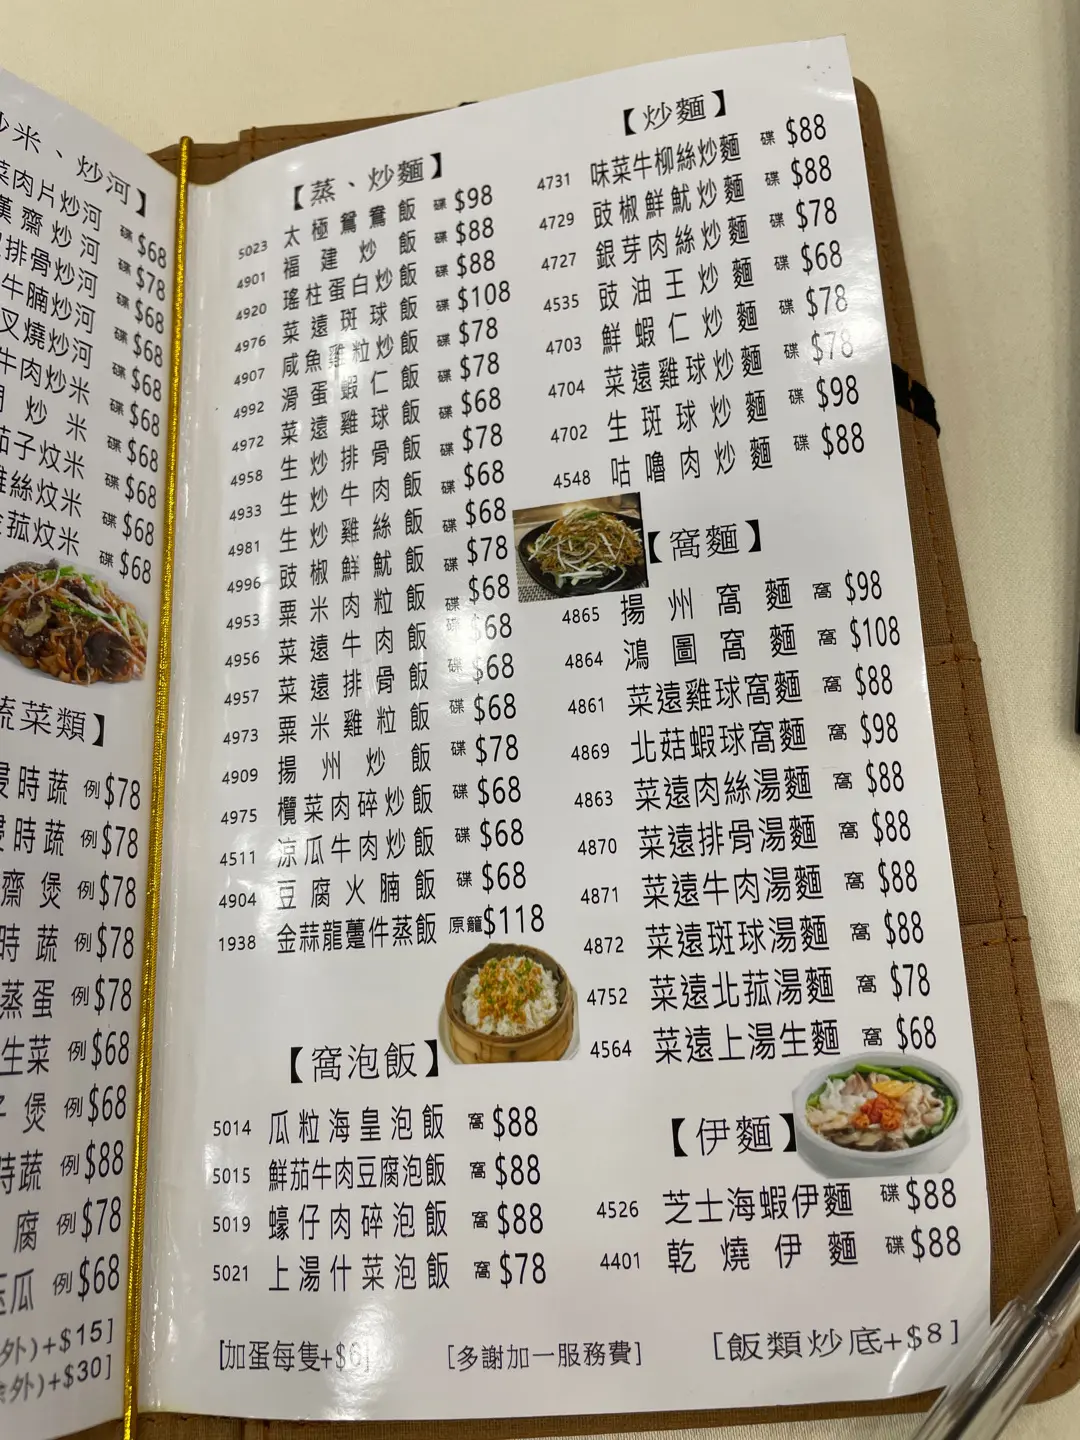 炒米、炒河】
菜肉片炒河 碟 $68
漢齋炒河 碟 $78
排骨炒河 碟 $68
牛腩炒河 碟 $68
叉燒炒河 碟 $68
牛肉炒米 碟 $68
炒米 碟 $68
茄子炆米 碟 $68
雞絲炆米 碟 $68
菇炆米 碟 $68
蔬菜類】
浸時蔬 例 $78
浸時蔬 例 $78
齋煲 例 $78
時蔬 例 $78
蒸蛋 例 $78
生菜 例 $68
煲 例 $68
時蔬 例 $88
腐 例 $78
瓜 例 $68
外)+$15]
外)+$30]
【蒸、炒麵】
5023 太極鴛鴦飯 碟 $98
4901 福建炒飯 碟 $88
4920 瑤柱蛋白炒飯 碟 $88
4976 菜遠斑球飯 碟 $108
4907 咸魚雞粒炒飯 碟 $78
4992 滑蛋蝦仁飯 碟 $78
4972 菜遠雞球飯 碟 $68
4958 生炒排骨飯 碟 $78
4933 生炒牛肉飯 碟 $68
4981 生炒雞絲飯 碟 $68
4996 豉椒鮮魷飯 碟 $78
4953 粟米肉粒飯 碟 $68
4956 菜遠牛肉飯 碟 $68
4957 菜遠排骨飯 碟 $68
4973 粟米雞粒飯 碟 $68
4909 揚州炒飯 碟 $78
4975 欖菜肉碎炒飯 碟 $68
4511 涼瓜牛肉炒飯 碟 $68
4904 豆腐火腩飯 碟 $68
1938 金蒜龍躉件蒸飯 原籠 $118
【窩泡飯】
5014 瓜粒海皇泡飯 窩 $88
5015 鮮茄牛肉豆腐泡飯 窩 $88
5019 蠔仔肉碎泡飯 窩 $88
5021 上湯什菜泡飯 窩 $78
【炒麵】
4731 味菜牛柳絲炒麵 碟 $88
4729 豉椒鮮魷炒麵 碟 $88
4727 銀芽肉絲炒麵 碟 $78
4535 豉油王炒麵 碟 $68
4703 鮮蝦仁炒麵 碟 $78
4704 菜遠雞球炒麵 碟 $78
4702 生斑球炒麵 碟 $98
4548 咕嚕肉炒麵 碟 $88
【窩麵】
4865 揚州窩麵 窩 $98
4864 鴻圖窩麵 窩 $108
4861 菜遠雞球窩麵 窩 $88
4869 北菇蝦球窩麵 窩 $98
4863 菜遠肉絲湯麵 窩 $88
4870 菜遠排骨湯麵 窩 $88
4871 菜遠牛肉湯麵 窩 $88
4872 菜遠斑球湯麵 窩 $88
4752 菜遠北菰湯麵 窩 $78
4564 菜遠上湯生麵 窩 $68
【伊麵】
4526 芝士海蝦伊麵 碟 $88
4401 乾燒伊麵 碟 $88
[加蛋每隻+$6] [多謝加一服務費] [飯類炒底+$8]